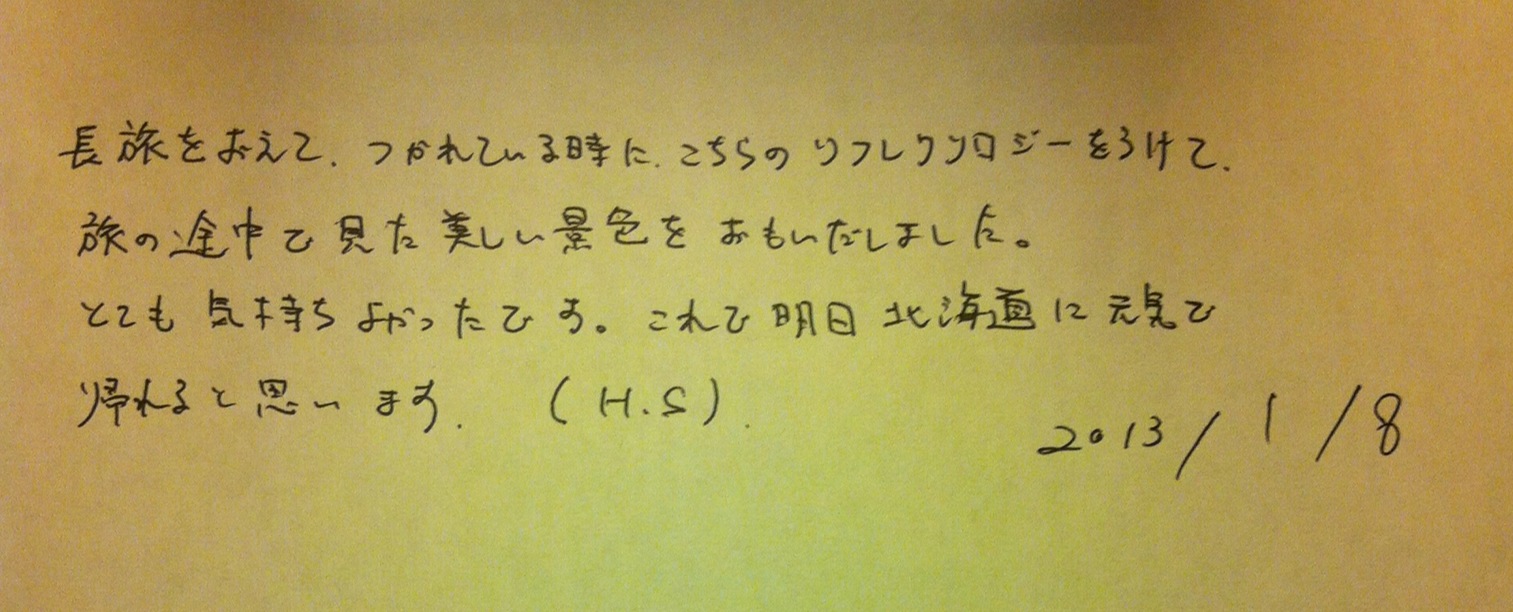 長旅をおえて、つかれている時に、こちらのリフレクソロジーをうけて、
旅の途中で見た美しい景色をおもいだしました。
とても気持ちよかったです。これで明日北海道に元気で
帰れると思います。(H.S).
2013/1/8